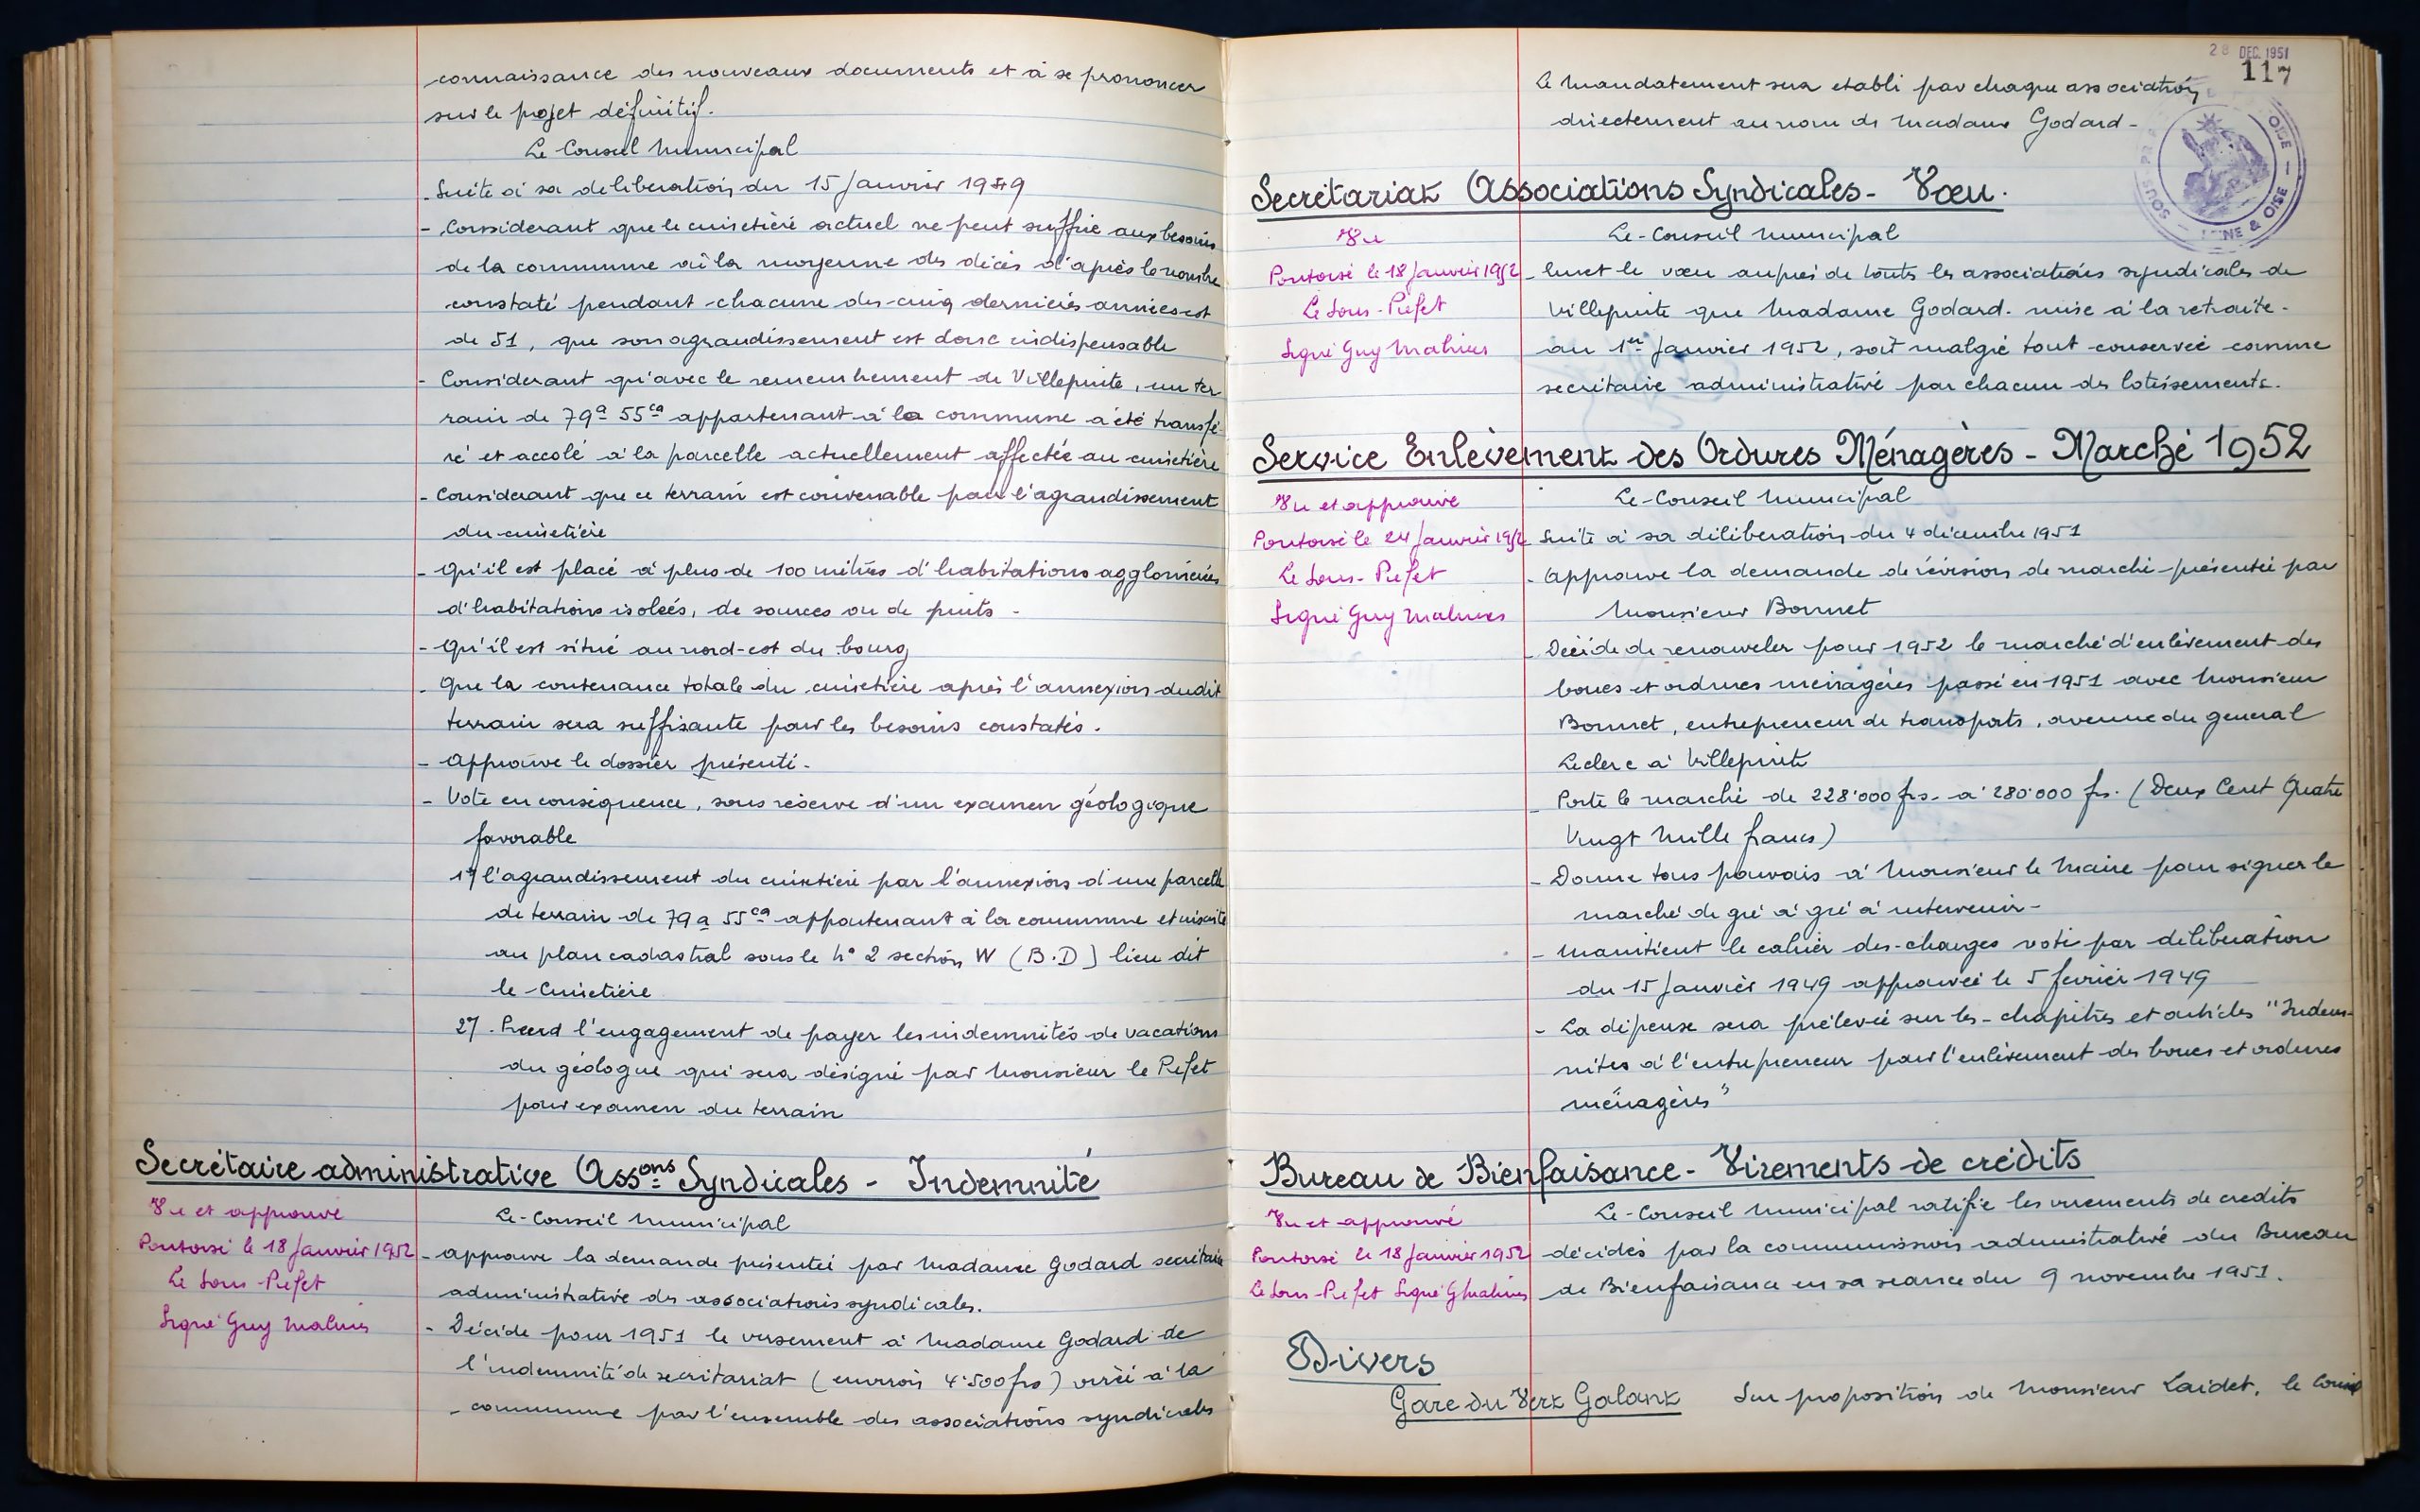 connaissance des nouveaux documents et à se prononcer
sur le projet définitif.
Le Conseil Municipal
- Suite à sa deliberation du 15 Janvier 1949
- Considerant que le cimetière actuel ne peut suffire aux besoins
de la commune où la moyenne des décès d'après le nombre
constaté pendant chacune des cinq dernières années est
de 51, que son agrandissement est donc indispensable
- Considerant qu'avec le remembrement de Villepinte, un ter
rain de 79a 55ca appartenant à la commune a été transfé-
ré et accolé à la parcelle actuellement affectée au cimetière
- Considerant que ce terrain est convenable pour l'agrandissement
du cimetière
- Qu'il est placé à plus de 100 mètres d'habitations agglomérées
d'habitations isolées, de sources ou de puits -
- Qu'il est situé au nord-est du bourg
- Que la contenance totale du cimetière après l'annexion dudit
terrain sera suffisante pour les besoins constatés.
- Approuve le dossier présenté.
- Vote en conséquence, sous réserve d'un examen géologique
favorable
1°/ l'agrandissement du cimetière par l'annexion d'une parcelle
de terrain de 79a 55ca appartenant à la commune et inscrite
au plan cadastral sous le N° 2 section W (B.D) lieu dit
le Cimetière
2°/ - Prend l'engagement de payer les indemnités de vacations
du géologue qui sera désigné par Monsieur le Préfet
pour examen du terrain
Secrétaire administrative Assons Syndicales - Indemnité
Vu et approuvé
Pontoise le 18 Janvier 1952
Le Sous-Préfet
Signé Guy Malines
Le Conseil Municipal
- approuve la demande présentée par Madame Godard secrétaire
administrative des associations syndicales.
- Décide pour 1951 le versement à Madame Godard de
l'indemnité de secrétariat (environ 4.500 frs) versée à la
commune par l'ensemble des associations syndicales
28 DEC. 1951
117
Le mandatement sera établi par chaque association
directement au nom de Madame Godard -
SEINE & OISE
Secrétariat Associations Syndicales - Vœu.
Vu
Pontoise le 18 Janvier 1952
Le Sous-Préfet
Signé Guy Malines
Le Conseil Municipal
- Emet le vœu auprès de toutes les associations syndicales de
Villepinte que Madame Godard. mise à la retraite.
au 1er Janvier 1952, soit malgré tout conservée comme
secrétaire administrative par chacun des lotissements.
Service Enlèvement des Ordures Ménagères - Marché 1952
Vu et approuvé
Pontoise le 24 Janvier 1952
Le Sous-Préfet
Signé Guy Malines
Le Conseil Municipal
Suite à sa délibération du 4 décembre 1951
- Approuve la demande de révision de marché présentée par
Monsieur Bonnet
- Décide de renouveler pour 1952 le marché d'enlèvement des
boues et ordures ménagères passé en 1951 avec Monsieur
Bonnet, entrepreneur de transports, avenue du général
Leclerc à Villepinte
- Porte le marché de 228.000 frs. à 280.000 frs. (Deux Cent Quatre
Vingt Mille francs)
- Donne tous pouvoirs à Monsieur le Maire pour signer le
marché de gré à gré à intervenir -
- Maintient le cahier des charges voté par délibération
du 15 Janvier 1949 approuvée le 5 février 1949
- La dépense sera prélevée sur les chapitres et articles "Indem-
nités à l'entrepreneur pour l'enlèvement des boues et ordures
ménagères"
Bureau de Bienfaisance - Virements de crédits
Vu et approuvé
Pontoise le 18 Janvier 1952
Le Sous-Préfet Signé G Malines
Le Conseil Municipal ratifie les virements de crédits
décidés par la commission administrative du Bureau
de Bienfaisance en sa séance du 9 novembre 1951.
Divers
Gare du Vert Galant Sur proposition de Monsieur Laidet, le Conseil